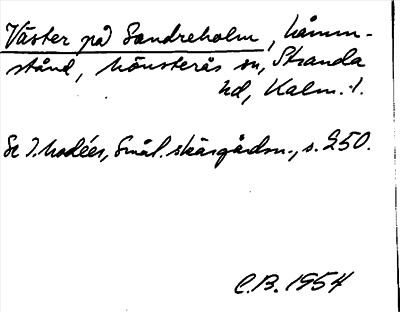 Väster på Sandreholm, håmm-
stånd, Mönsterås sn, Stranda
hd, Kalm. l.
Se I. Modéer, Smål. skärgårdsn., s. 250.
C.B. 1954